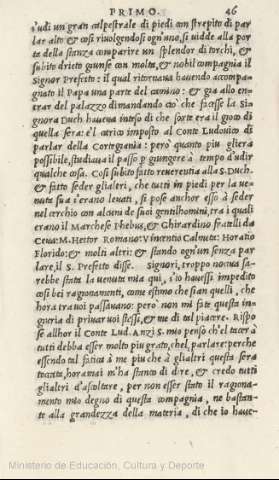 PRIMO. 46
s'udì un gran calpestrale di piedi con strepito di par
lar alto & così rivolgendosi ogn'uno, si vidde alla por
te della stanza comparire un splendor di torchi, &
subito drieto giunse con molta, & nobil compagnia il
Signor Prefetto: il qual ritornava havendo accompa=
gnato il Papa una parte del camino: & gia allo en=
trar del palazzo dimandando ciò che facesse la Si=
gnora Duch. haueua inteso di che sorte era il gioco di
quella sera: e'l carico imposto al Conte Ludovico di
parlar della Cortegiania: però quanto piu gliera
possibile, studiaua il passo p giungere à tempo d'udir
qualche cosa. Così subito fatto reuerentia alla S. Duch.
& fatto seder gliatri, che tutti in piedi per la ue=
nuta sua s'erano leuati, si pose anchor esso à seder
nel cerchio con alcuni de suoi gentilhomini, tra i quali
erano il Marchese Phebus, & Ghirardino fratelli da
Ceua: M. Hettor Romano: Vincentio Calmeta: Horatio
Florido: & molti altri: & stando ogn'un senza par
lare, il S. Prefetto disse. Signori, troppo nociua sa=
rebbe stata la uenuta mia qui, s'io hauessi impedito
così bei ragionamenti, come estimo che sian quelli, che
hora tra uoi passauano: però non mi fate questa in=
giuria di priuar uoi stessi, & me di tal piacere. Rispo
se allhor il Conte Lud. Anzi S. mio penso ch'el tacer à
tutti debba esser molto piu grato, chel parlare: perche
essendo tal fatica à me piu che à glialtri questa sera
toccata, horamai m'ha stanco di dire, & credo tutti
glialtri d'ascoltare, per non esser stato il ragiona=
mento mio degno di questa compagnia, ne bastan=
te alla grandezza della materia, di che io haue=
Ministerio de Educación, Cultura y Deporte